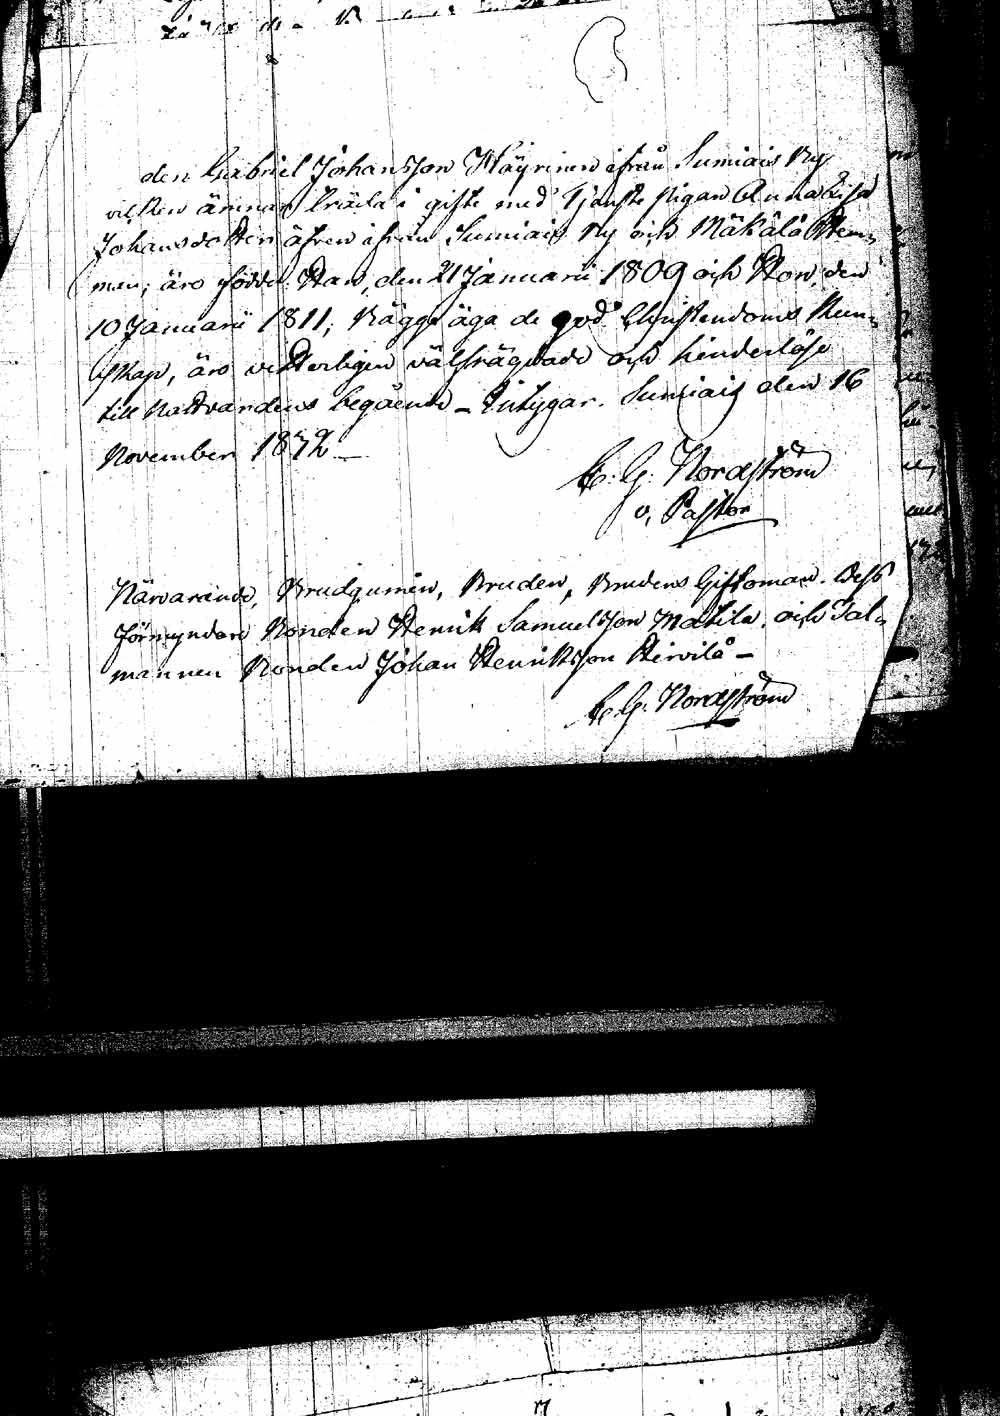 den Gabriel Johansson Häyrinen ifrån Sumiais By
vilken ämnar träda i gifte med Tjenste pigan Anna Lisa
Johansdotter äfven ifrån Sumiais By och Mäkälä Hem-
man; äro födde: Han, den 21 Januarii 1809 och Hon, den
10 Januarii 1811; Bägge äga de god Christendoms Kun-
skap, äro vitterligen välfrägdade och hinderlöse
till Nattvardens begående – Intygar. Sumiais den 16
November 1872 –
C. G. Nordström
v. Pastor
Närvarande, Brudgumen, Bruden, Brudens Giftoman. Dess
Förmyndare Bonden Henrik Samuelsson Matila, och Tal-
mannen Bonden Johan Henriksson Hirvilä –
C. G. Nordström